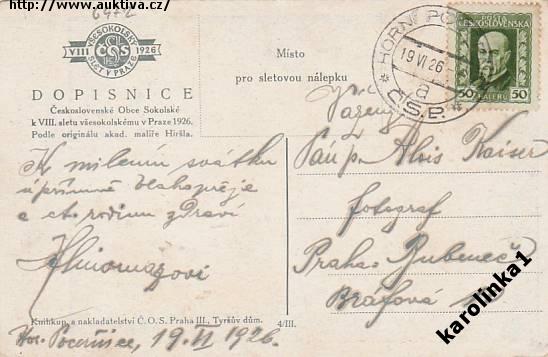 http://www.auktiva.cz
6472
VŠESOKOLSKÝ
VIII ČOS 1926
SLET V PRAZE
DOPISNICE
Československé Obce Sokolské
k VIII. sletu všesokolskému v Praze 1926.
Podle originálu akad. malíře Hiršla.
Místo
pro sletovou nálepku
HORNÍ PO
19 VI 26
a
Č.S.P.
POŠTA
ČESKOSLOVENSKÁ
50 HALÉŘŮ 50
K milému svátku
upřímně blahopřeje
a ct. rodinu zdraví
Vážený
Pán p. Alois Kaiser
fotograf
Praha-Bubeneč
Bráfova
Knihkup. a nakladatelství Č. O. S. Praha III., Tyršův dům.
4/III.
Hor. Počernice, 19. VI 1926.
karolinka1